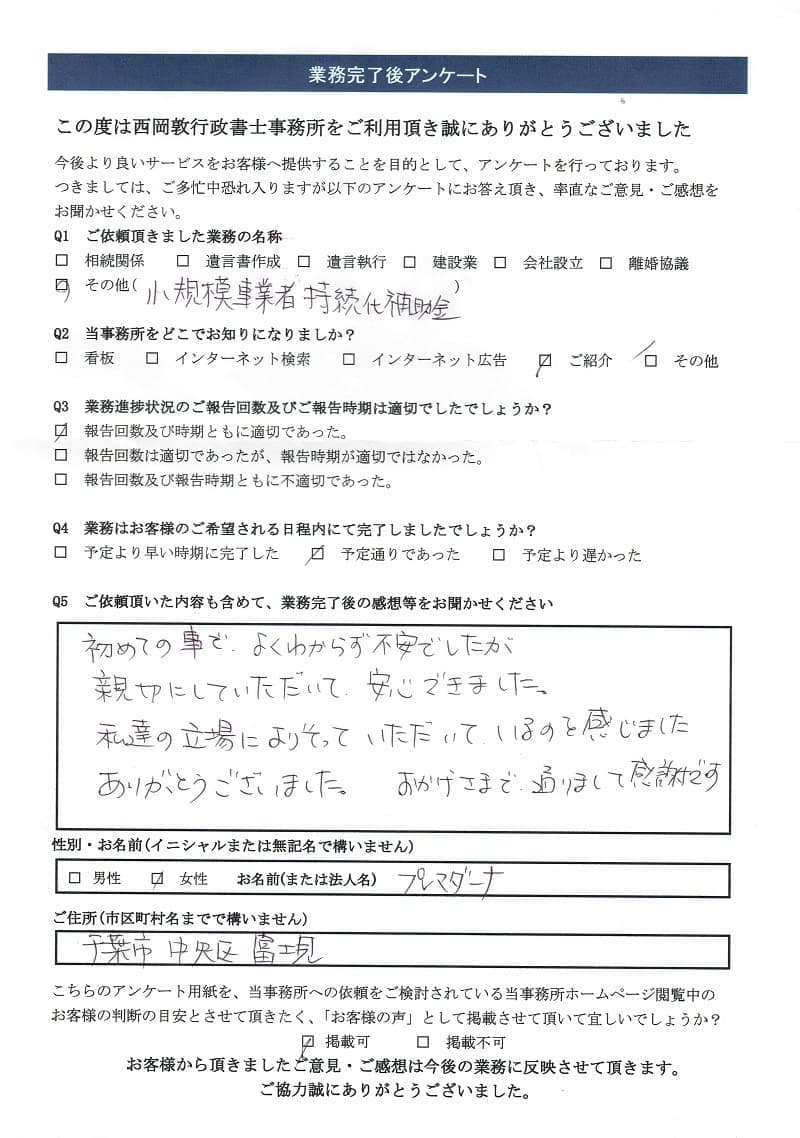 業務完了後アンケート
この度は西岡敦行政書士事務所をご利用頂き誠にありがとうございました
今後より良いサービスをお客様へ提供することを目的として、アンケートを行っております。
つきましては、ご多忙中恐れ入りますが以下のアンケートにお答え頂き、率直なご意見・ご感想を
お聞かせください。
Q1 ご依頼頂きました業務の名称
□ 相続関係 □ 遺言書作成 □ 遺言執行 □ 建設業 □ 会社設立 □ 離婚協議
☑ その他(小規模事業者持続化補助金)
Q2 当事務所をどこでお知りになりましか?
□ 看板 □ インターネット検索 □ インターネット広告 ☑ ご紹介 □ その他
Q3 業務進捗状況のご報告回数及びご報告時期は適切でしたでしょうか?
☑ 報告回数及び時期ともに適切であった。
□ 報告回数は適切であったが、報告時期が適切ではなかった。
□ 報告回数及び報告時期ともに不適切であった。
Q4 業務はお客様のご希望される日程内にて完了しましたでしょうか?
□ 予定より早い時期に完了した ☑ 予定通りであった □ 予定より遅かった
Q5 ご依頼頂いた内容も含めて、業務完了後の感想等をお聞かせください
初めての事で、よくわからず不安でしたが
親切にしていただいて、安心できました。
私達の立場によりそって いただいて いるのを感じました
ありがとうございました。 おかげさまで、通りまして感謝です
性別・お名前(イニシャルまたは無記名で構いません)
□ 男性 ☑ 女性 お名前(または法人名) プレマダーナ
ご住所(市区町村名までで構いません)
千葉市 中央区 富士見
こちらのアンケート用紙を、当事務所への依頼をご検討されている当事務所ホームページ閲覧中の
お客様の判断の目安とさせて頂きたく、「お客様の声」として掲載させて頂いて宜しいでしょうか?
☑ 掲載可 □ 掲載不可
お客様から頂きましたご意見・ご感想は今後の業務に反映させて頂きます。
ご協力誠にありがとうございました。